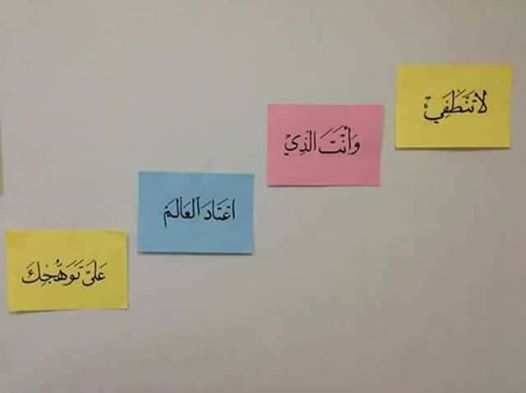 لاَتَنْطَفِيءْ
وَأَنْتَ الَّذِيْ
اعْتَادَ العَالَمْ
عَلىَ تَوَهُّجِكَ